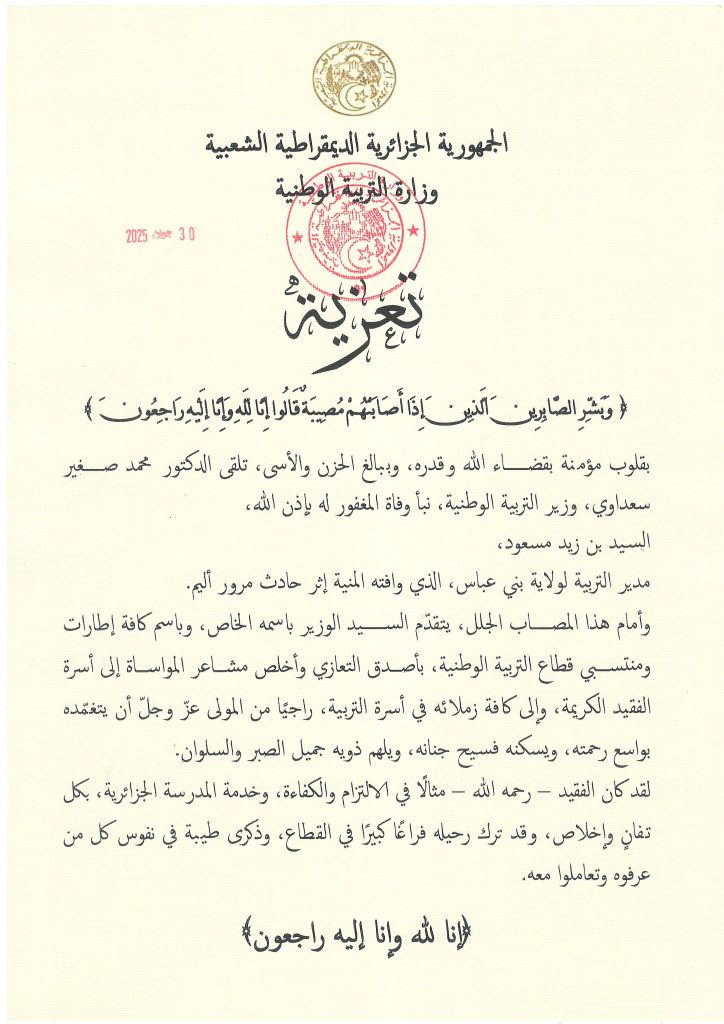 الجمهورية الجزائرية الديمقراطية الشعبية
وزارة التربية الوطنية
30 2025
تعزية
﴿ وَبَشِّرِ الصَّابِرِينَ الَّذِينَ إِذَا أَصَابَتْهُمْ مُصِيبَةٌ قَالُوا إِنَّا لِلَّهِ وَإِنَّا إِلَيْهِ رَاجِعُونَ ﴾
بقلوب مؤمنة بقضاء الله وقدره، وببالغ الحزن والأسى، تلقى الدكتور محمد صغير
سعداوي، وزير التربية الوطنية، نبأ وفاة المغفور له بإذن الله،
السيد بن زيد مسعود،
مدير التربية لولاية بني عباس، الذي وافته المنية إثر حادث مرور أليم.
وأمام هذا المصاب الجلل، يتقدّم السيد الوزير باسمه الخاص، وباسم كافة إطارات
ومنتسبي قطاع التربية الوطنية، بأصدق التعازي وأخلص مشاعر المواساة إلى أسرة
الفقيد الكريمة، وإلى كافة زملائه في أسرة التربية، راجيًا من المولى عزّ وجلّ أن يتغمّده
بواسع رحمته، ويسكنه فسيح جنانه، ويلهم ذويه جميل الصبر والسلوان.
لقد كان الفقيد – رحمه الله – مثالًا في الالتزام والكفاءة، وخدمة المدرسة الجزائرية، بكل
تفانٍ وإخلاص، وقد ترك رحيله فراغًا كبيرًا في القطاع، وذكرى طيبة في نفوس كل من
عرفوه وتعاملوا معه.
﴿إنا لله وانا إليه راجعون﴾